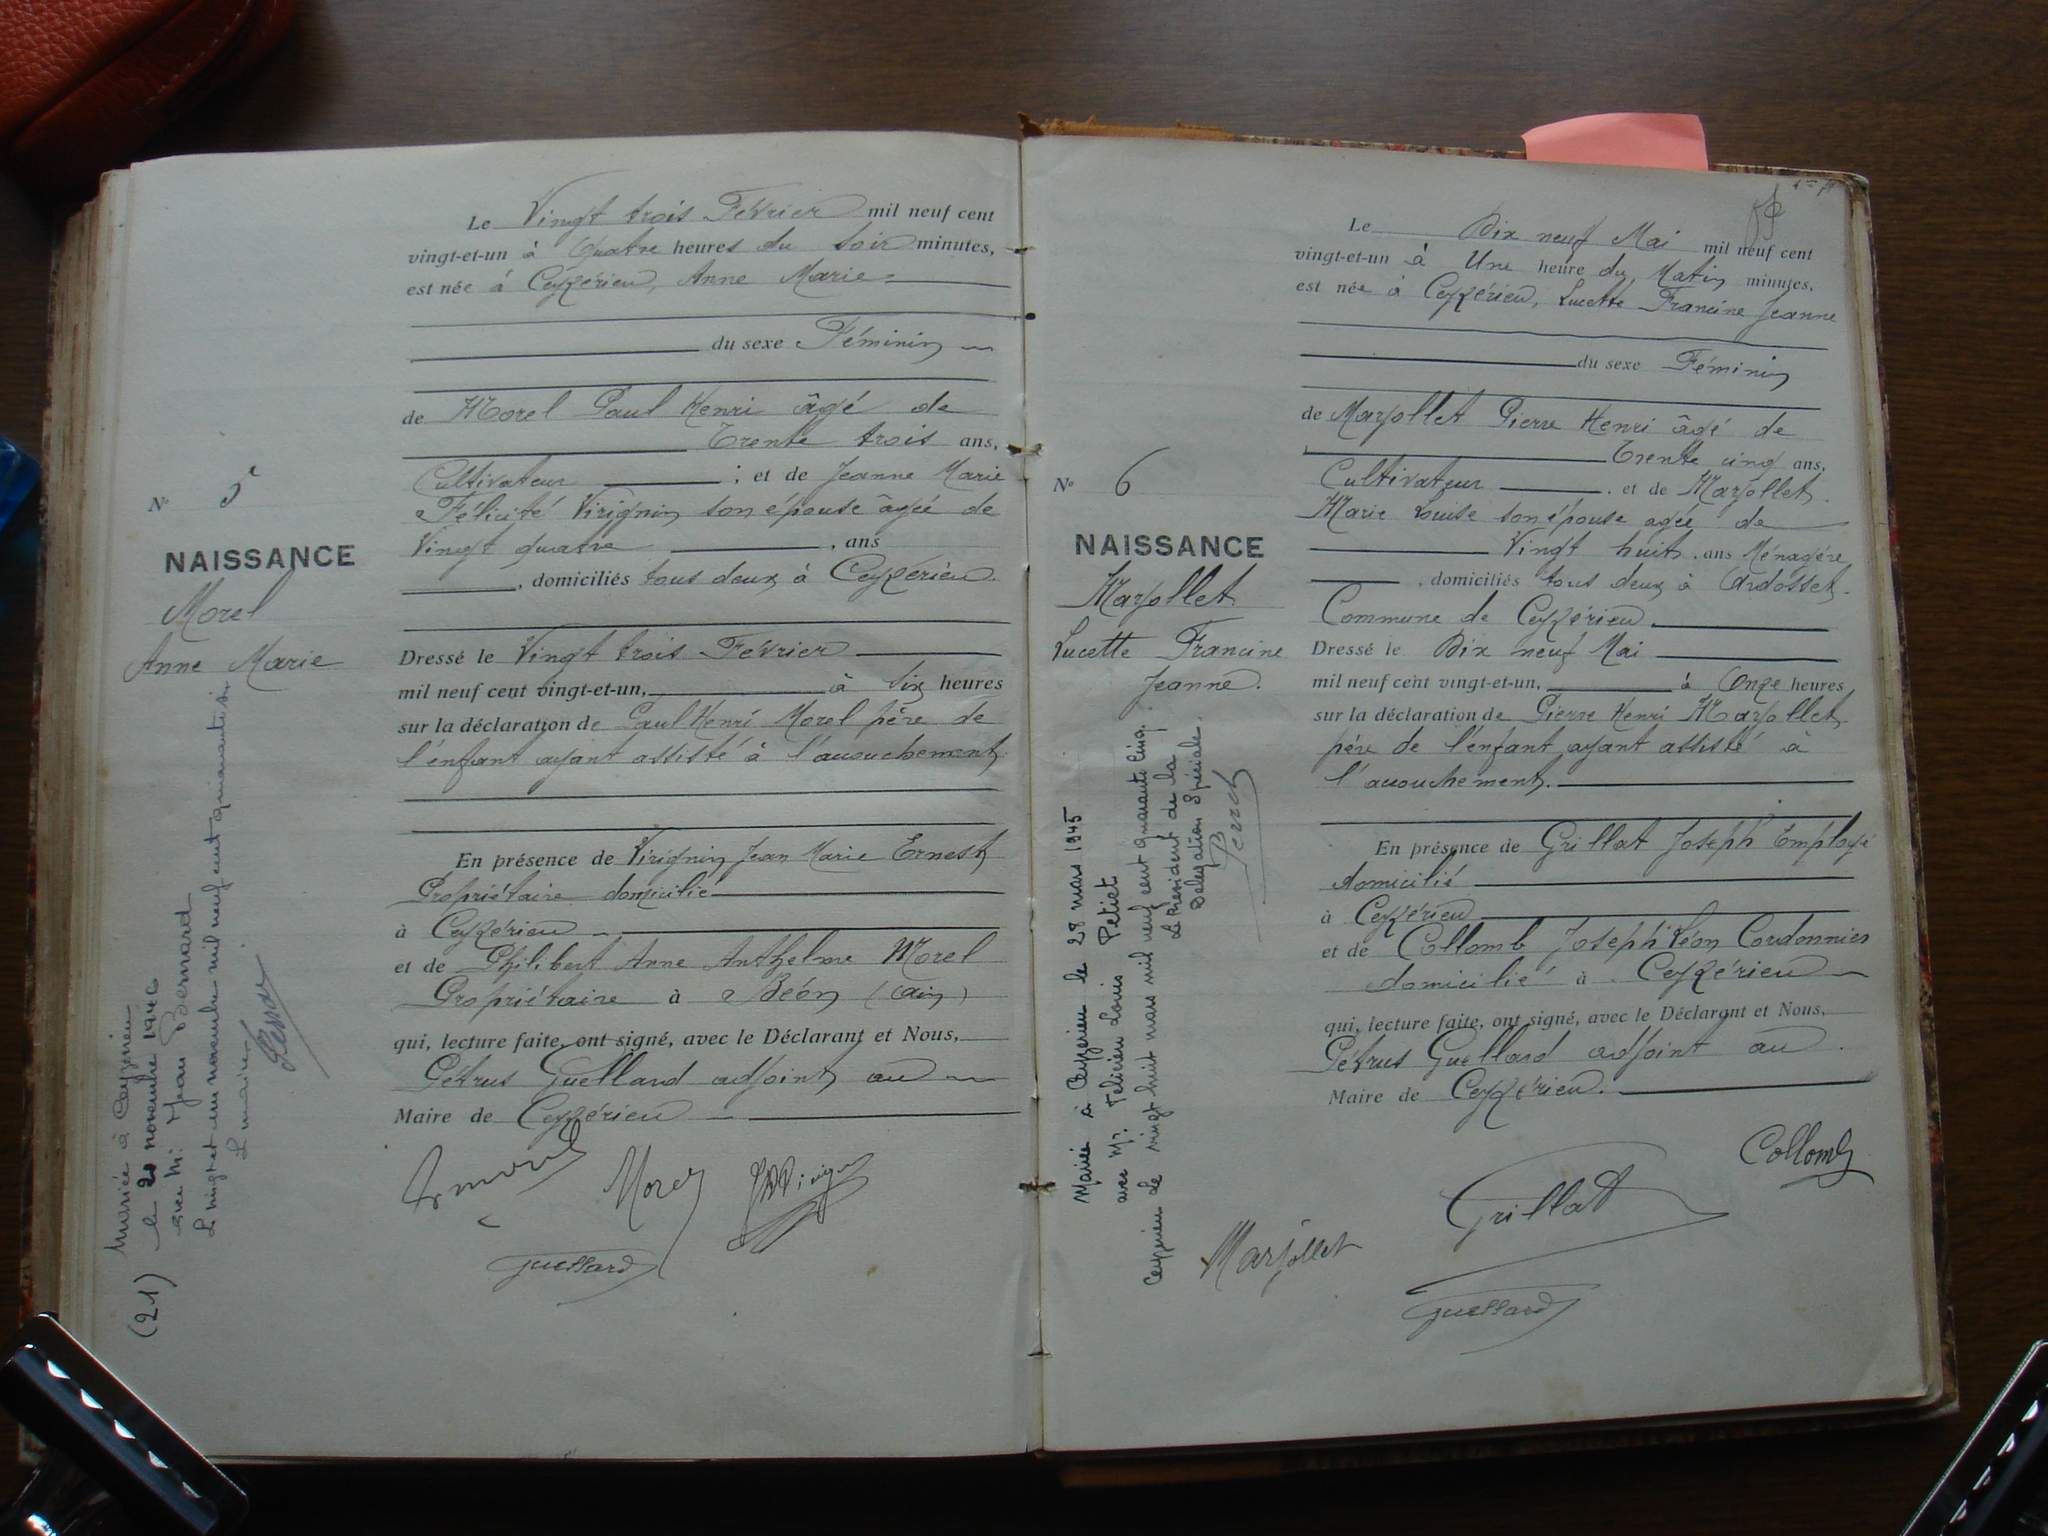 Le Vingt trois Février mil neuf cent
vingt-et-un à Quatre heures du Soir minutes,
est née à Ceyzérieu, Anne Marie
du sexe Féminin
de Morel Paul Henri âgé de
Trente trois ans,
Cultivateur ; et de Jeanne Marie
Félicité Virignin son épouse âgée de
Vingt quatre , ans
, domiciliés tous deux à Ceyzérieu.
Dressé le Vingt trois Février
mil neuf cent vingt-et-un, à Six heures
sur la déclaration de Paul Henri Morel père de
l'enfant ayant assisté à l'accouchement
En présence de Virignin Jean Marie Ernest
Propriétaire domicilié
à Ceyzérieu
et de Philibert Anne Anthelme Morel
Propriétaire à Béon (Ain)
qui, lecture faite, ont signé, avec le Déclarant et Nous,
Pétrus Guellard adjoint au
Maire de Ceyzérieu
Morel
Guellard
N° 5
NAISSANCE
Morel
Anne Marie
(21) Mariée à Ceyzérieu
le 20 novembre 1946
avec Mr. Jean Bernard
Le vingt et un novembre mil neuf cent quarante six
Le maire
Le Dix neuf Mai mil neuf cent
vingt-et-un à Une heure du Matin minutes,
est née à Ceyzérieu, Lucette Francine Jeanne
du sexe Féminin
de Marjollet Pierre Henri âgé de
Trente cinq ans,
Cultivateur , et de Marjollet
Marie Louise son épouse agée de
Vingt huit , ans Ménagère
, domiciliés tous deux à Ardosset
Commune de Ceyzérieu.
Dressé le Dix neuf Mai
mil neuf cent vingt-et-un, à Onze heures
sur la déclaration de Pierre Henri Marjollet
père de l'enfant ayant assisté à
l'accouchement.
En présence de Grillat Joseph Employé
domicilié
à Ceyzérieu
et de Collomb Joseph Léon Cordonnier
domicilié à Ceyzérieu
qui, lecture faite, ont signé, avec le Déclarant et Nous,
Pétrus Guellard adjoint au
Maire de Ceyzérieu.
Collomb
Grillat
Marjollet
Guellard
N° 6
NAISSANCE
Marjollet
Lucette Francine
Jeanne.
Mariée à Ceyzérieu le 28 mars 1945
avec Mr. Félicien Louis Petiet
Ceyzérieu le vingt huit mars mil neuf cent quarante cinq.
Le Président de la
Délégation Spéciale,
Perret